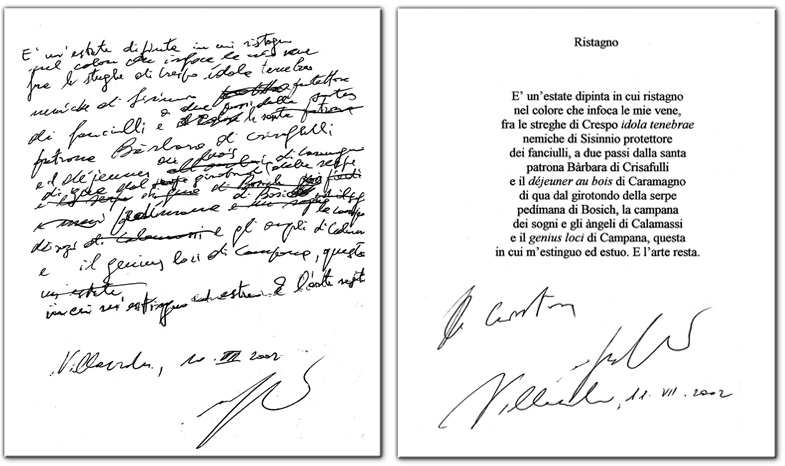 E' un'estate dipinta in cui ristagno
nel colore che infoca le mie vene
fra le streghe di Crespo idola tenebrae
nemiche di Sisinnio protettore
di fanciulli a due passi dalla santa
patrona Bàrbara di Crisafulli
e il déjeuner au bois di Caramagno
di qua dal girotondo della serpe
di Bosich
la campana
dei sogni e gli angeli di Calamassi
e il genius loci di Campana, questa
un'estate
in cui m'estinguo ed estuo. E l'arte resta
10 VII 2002
Ristagno
E' un'estate dipinta in cui ristagno
nel colore che infoca le mie vene,
fra le streghe di Crespo idola tenebrae
nemiche di Sisinnio protettore
dei fanciulli, a due passi dalla santa
patrona Bàrbara di Crisafulli
e il déjeuner au bois di Caramagno
di qua dal girotondo della serpe
pedímana di Bosich, la campana
dei sogni e gli àngeli di Calamassi
e il genius loci di Campana, questa
in cui m'estinguo ed estuo. E l'arte resta.
11. VII. 2002